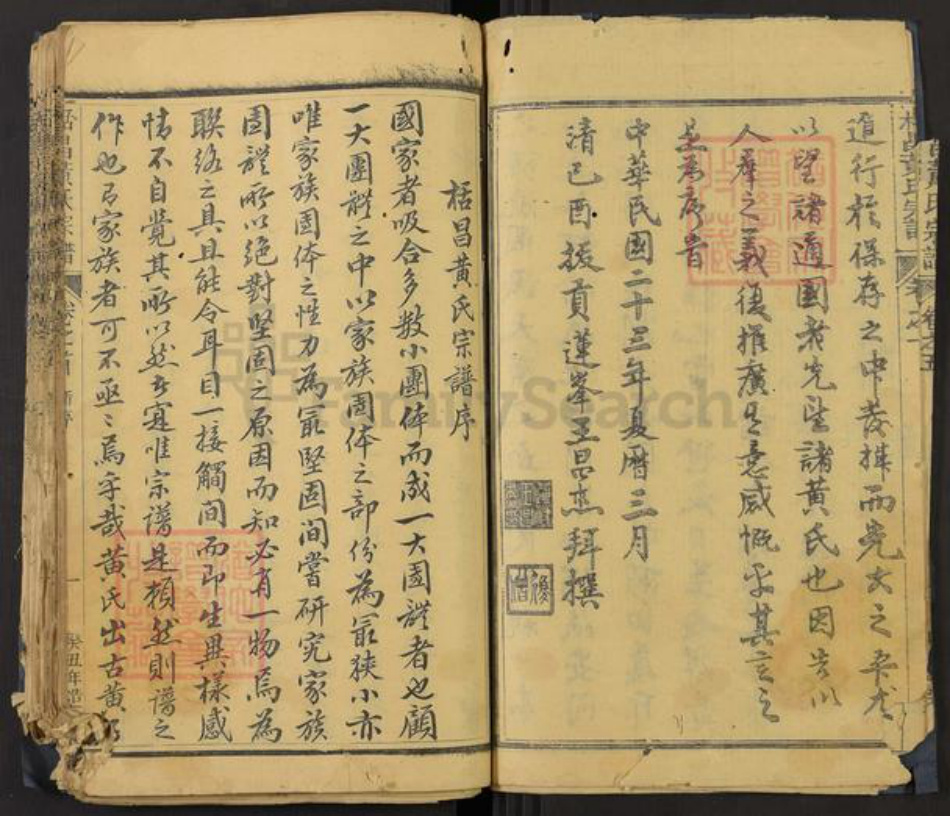 進行於保存之中發揮而光大之乎尤
以望諸通國者先望諸黃氏也因告以
人群之義復推廣其意感慨乎其言之
是為序旹
中華民國二十三年夏曆三月
清己酉拔貢蓮峯王 拜撰
栝昌黃氏宗譜序
國家者吸合多数小團体而成一大團體者也顧
一大團體之中以家族團体之部份為最狹小亦
唯家族團体之性力為最堅固間嘗研究家族
團體所以絕對堅固之原因而知必有一物焉為
聯絡之具且能令耳目一接觸間而即生異樣感
情不自覺其所以然者寔唯宗譜是賴然則譜之
作也有家族者可不亟〻焉乎哉黃氏出古黃
癸丑年造
FamilySearch